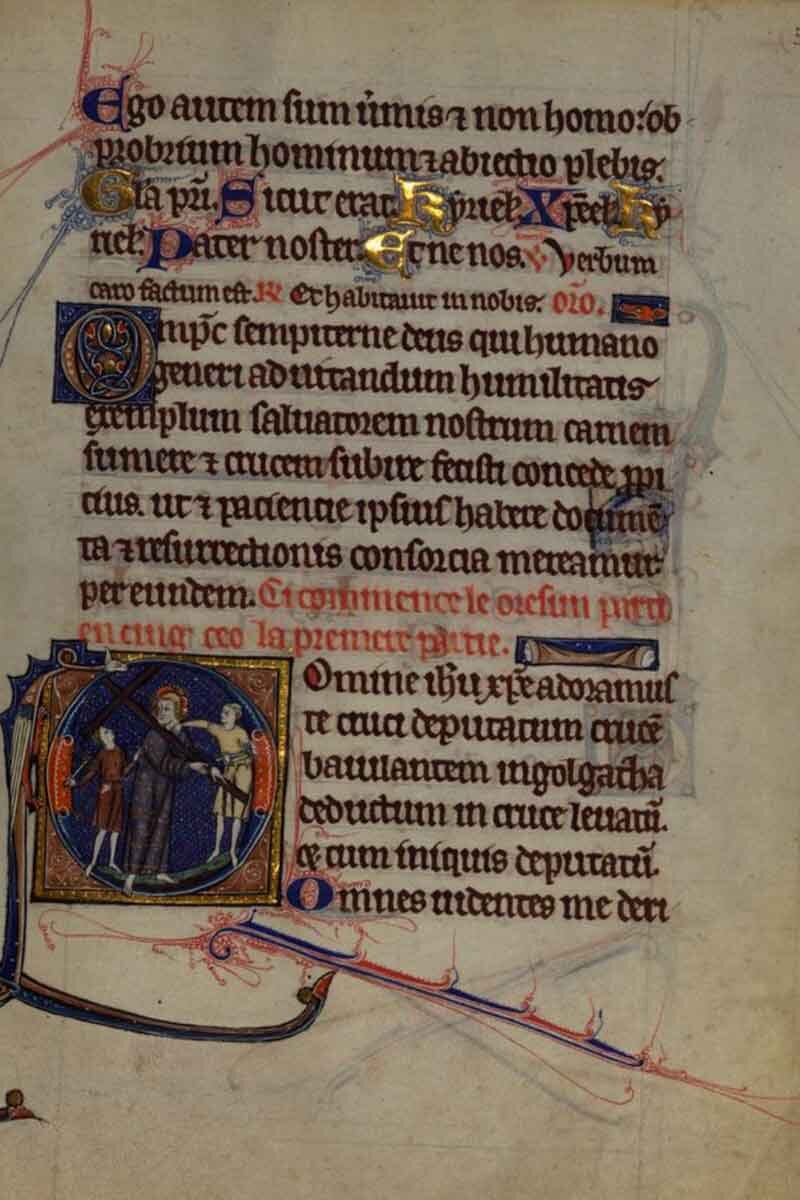 Ego autem sum ūmis ⁊ non homo: ob
probrium hominum ⁊ abiectio plebis.
Gla pri. Sicut erat. Kyriel. Xpeel. Ky
riel. Pater noster. Et ne nos. Verbum
caro factum est. R Et habitauit in nobis. oro.
Omps sempiterne deus qui humano
generi ad imitandum humilitatis
exemplum saluatorem nostrum carnem
sumere ⁊ crucem subire fecisti concede ppi
cius. ut ⁊ paciencie ipsius habere documē
ta ⁊ resurrectionis consorcia mereamur.
per eundem. Ci commence le oresun
ceo la premere partie.
Domine ihu xpe adoramus
te cruci deputatum crucē
baiulantem in golgatha
deductum in cruce leuatū.
ce cum iniquis deputatū.
Omnes uidentes me deri